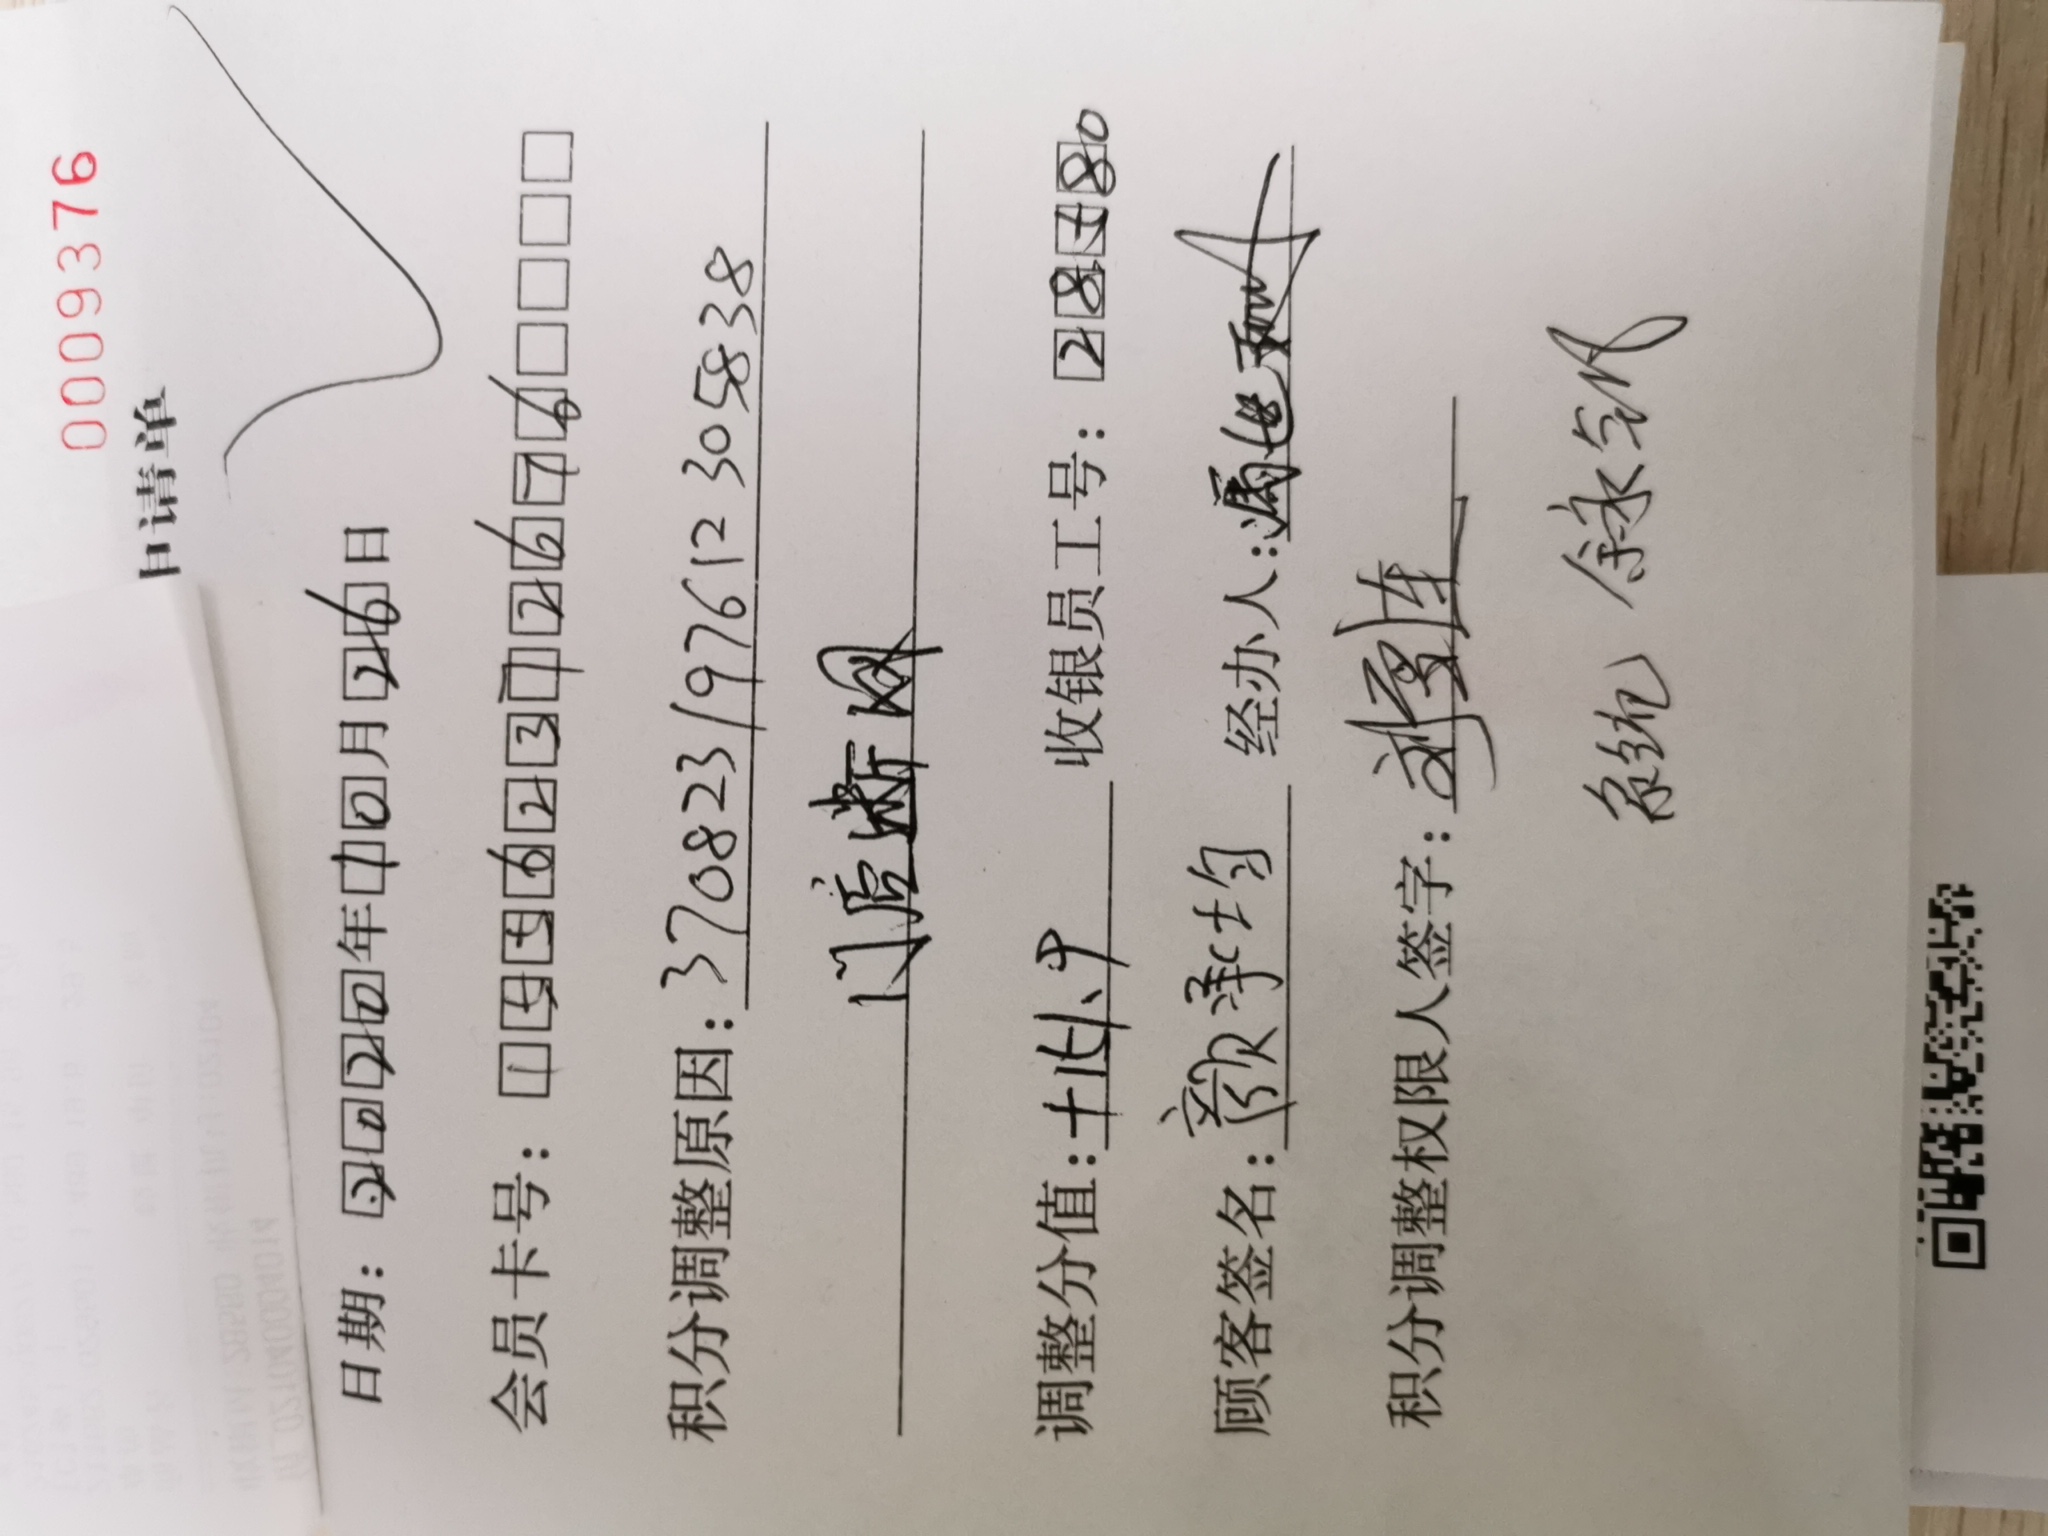 0009376
申请单
日期：2020年10月26日
会员卡号：15562372676
积分调整原因：370823197612305838
门店断网
调整分值：收银员工号：28580
顾客签名：颜泽均 经办人：
积分调整权限人签字：
系统 余永